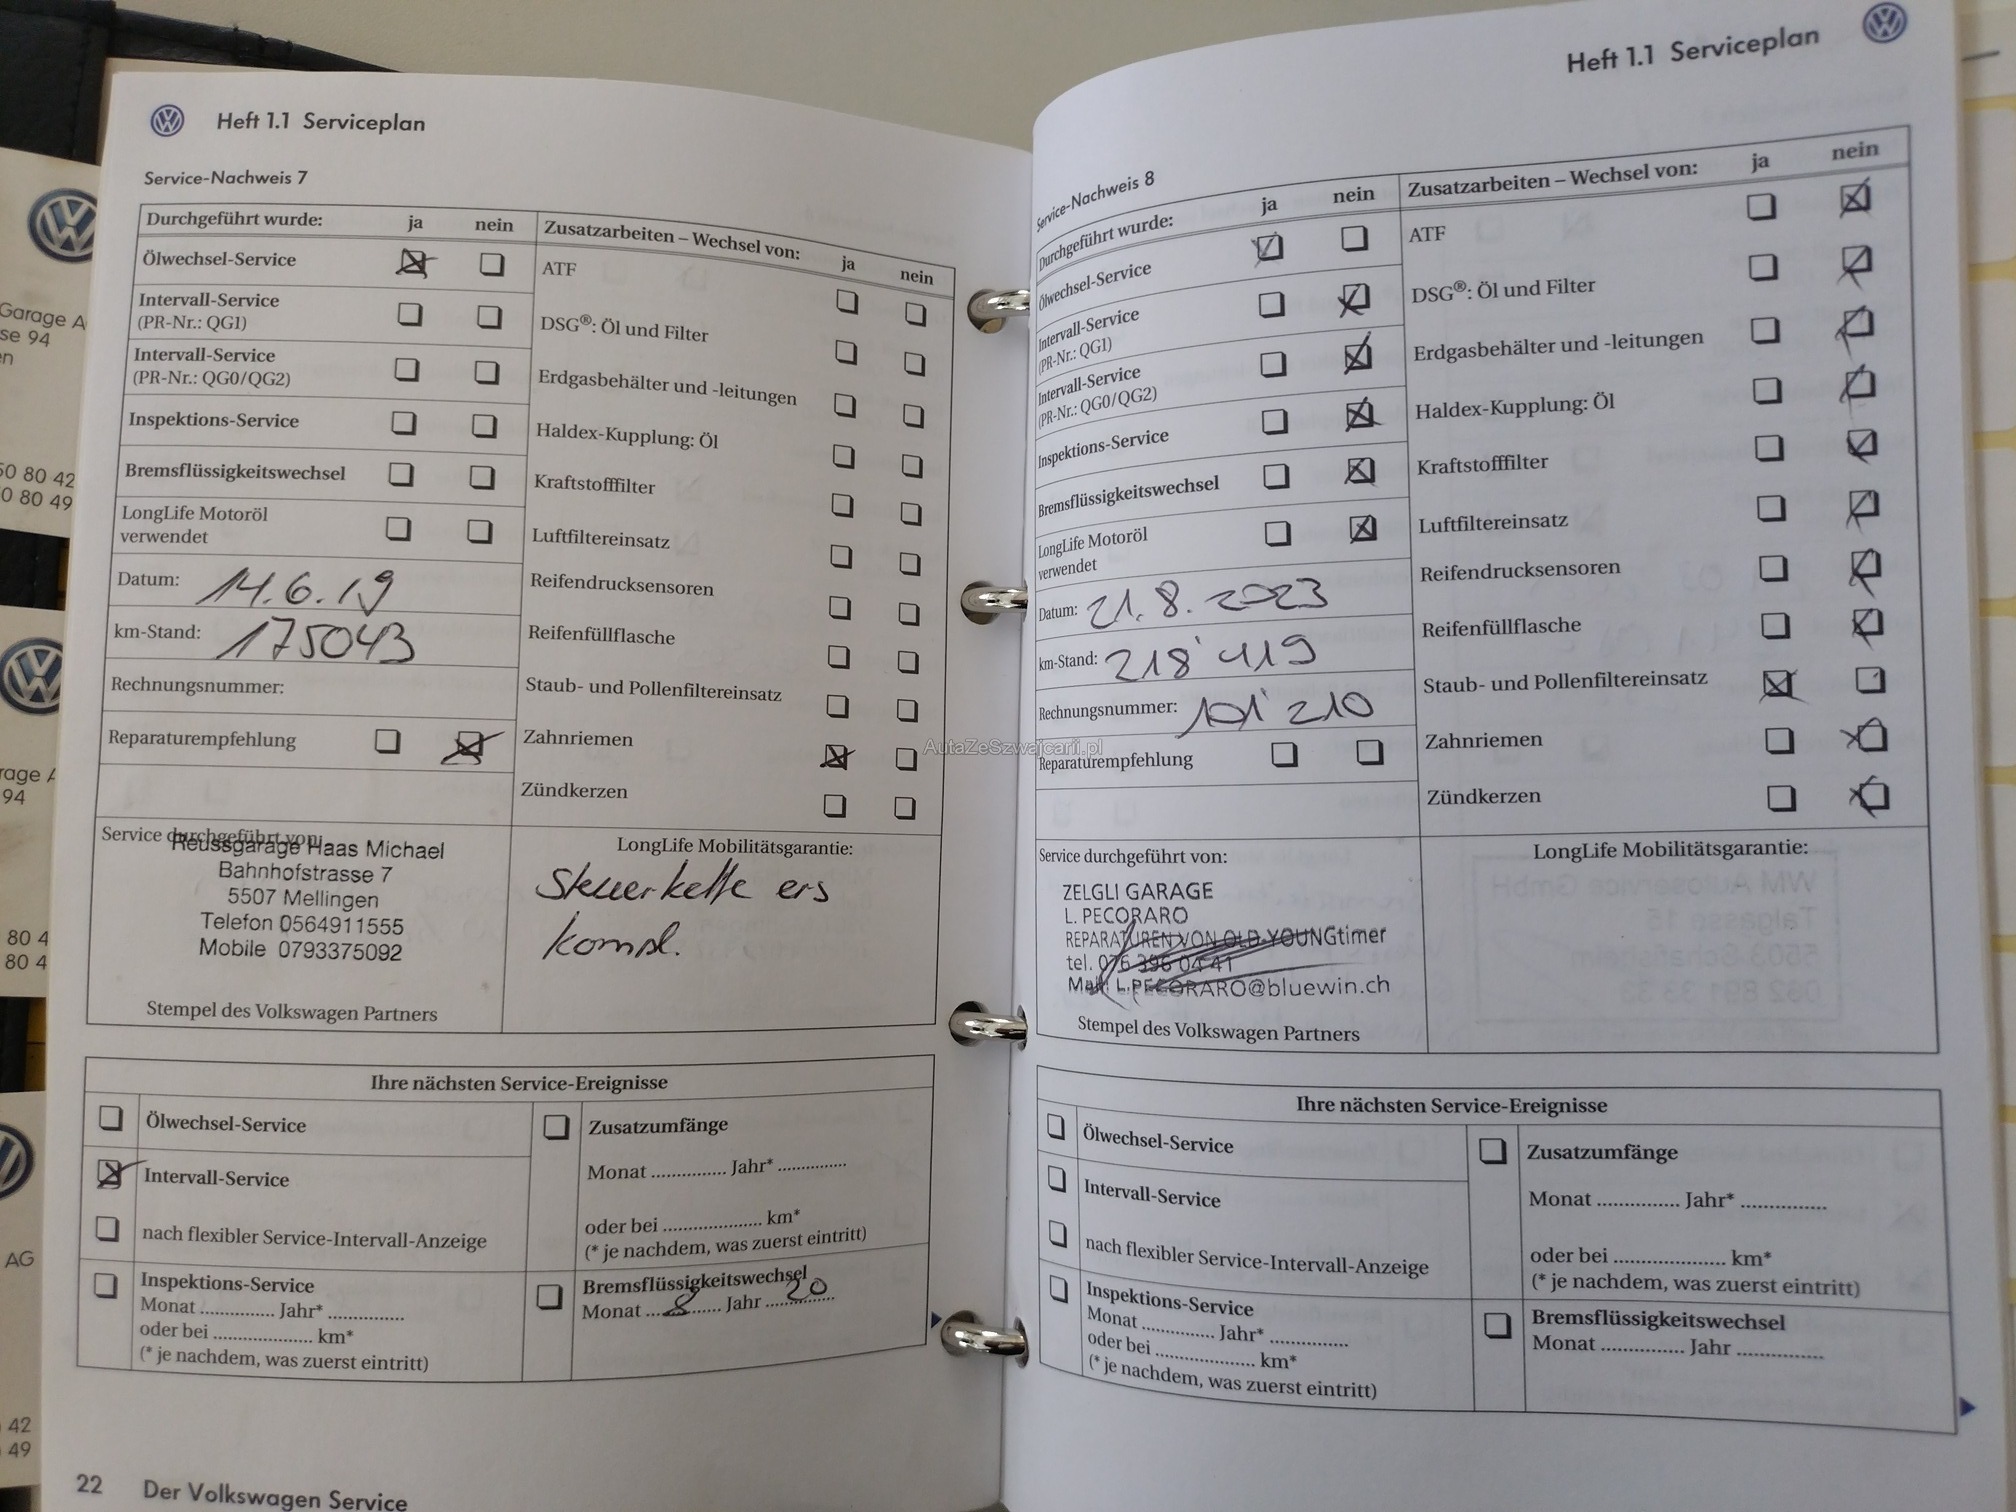 Heft 1.1 Serviceplan
Service-Nachweis 7
Durchgeführt wurde: ja nein
Ölwechsel-Service
Intervall-Service
(PR-Nr.: QG1)
Intervall-Service
(PR-Nr.: QG0/QG2)
Inspektions-Service
Bremsflüssigkeitswechsel
LongLife Motoröl
verwendet
Datum: 14.6.19
km-Stand: 175043
Rechnungsnummer:
Reparaturempfehlung
Zusatzarbeiten – Wechsel von: ja nein
ATF
DSG®: Öl und Filter
Erdgasbehälter und -leitungen
Haldex-Kupplung: Öl
Kraftstofffilter
Luftfiltereinsatz
Reifendrucksensoren
Reifenfüllflasche
Staub- und Pollenfiltereinsatz
Zahnriemen
Zündkerzen
Service durchgeführt von:
Reussgarage Haas Michael
Bahnhofstrasse 7
5507 Mellingen
Telefon 0564911555
Mobile 0793375092
Stempel des Volkswagen Partners
LongLife Mobilitätsgarantie:
Steuerkette ers
kompl.
Ihre nächsten Service-Ereignisse
Ölwechsel-Service
Intervall-Service
nach flexibler Service-Intervall-Anzeige
Inspektions-Service
Monat .............. Jahr* ..............
oder bei .................... km*
(* je nachdem, was zuerst eintritt)
Zusatzumfänge
Monat .............. Jahr* ..............
oder bei .................... km*
(* je nachdem, was zuerst eintritt)
Bremsflüssigkeitswechsel
Monat 8 Jahr 20
22 Der Volkswagen Service
Heft 1.1 Serviceplan
Service-Nachweis 8
Durchgeführt wurde: ja nein
Ölwechsel-Service
Intervall-Service
(PR-Nr.: QG1)
Intervall-Service
(PR-Nr.: QG0/QG2)
Inspektions-Service
Bremsflüssigkeitswechsel
LongLife Motoröl
verwendet
Datum: 21.8.2023
km-Stand: 218'419
Rechnungsnummer: 101'210
Reparaturempfehlung
Zusatzarbeiten – Wechsel von: ja nein
ATF
DSG®: Öl und Filter
Erdgasbehälter und -leitungen
Haldex-Kupplung: Öl
Kraftstofffilter
Luftfiltereinsatz
Reifendrucksensoren
Reifenfüllflasche
Staub- und Pollenfiltereinsatz
Zahnriemen
Zündkerzen
Service durchgeführt von:
ZELGLI GARAGE
L. PECORARO
REPARATUREN VON OLD-YOUNGtimer
tel. 076 396 04 41
Mail: L.PECORARO@bluewin.ch
Stempel des Volkswagen Partners
LongLife Mobilitätsgarantie:
Ihre nächsten Service-Ereignisse
Ölwechsel-Service
Intervall-Service
nach flexibler Service-Intervall-Anzeige
Inspektions-Service
Monat .............. Jahr* ..............
oder bei .................... km*
(* je nachdem, was zuerst eintritt)
Zusatzumfänge
Monat .............. Jahr* ..............
oder bei .................... km*
(* je nachdem, was zuerst eintritt)
Bremsflüssigkeitswechsel
Monat .............. Jahr ..............
AutaZeSzwajcarii.pl
Garage A
se 94
en
50 80 42
0 80 49
94
80 4
80 4
AG
42
49